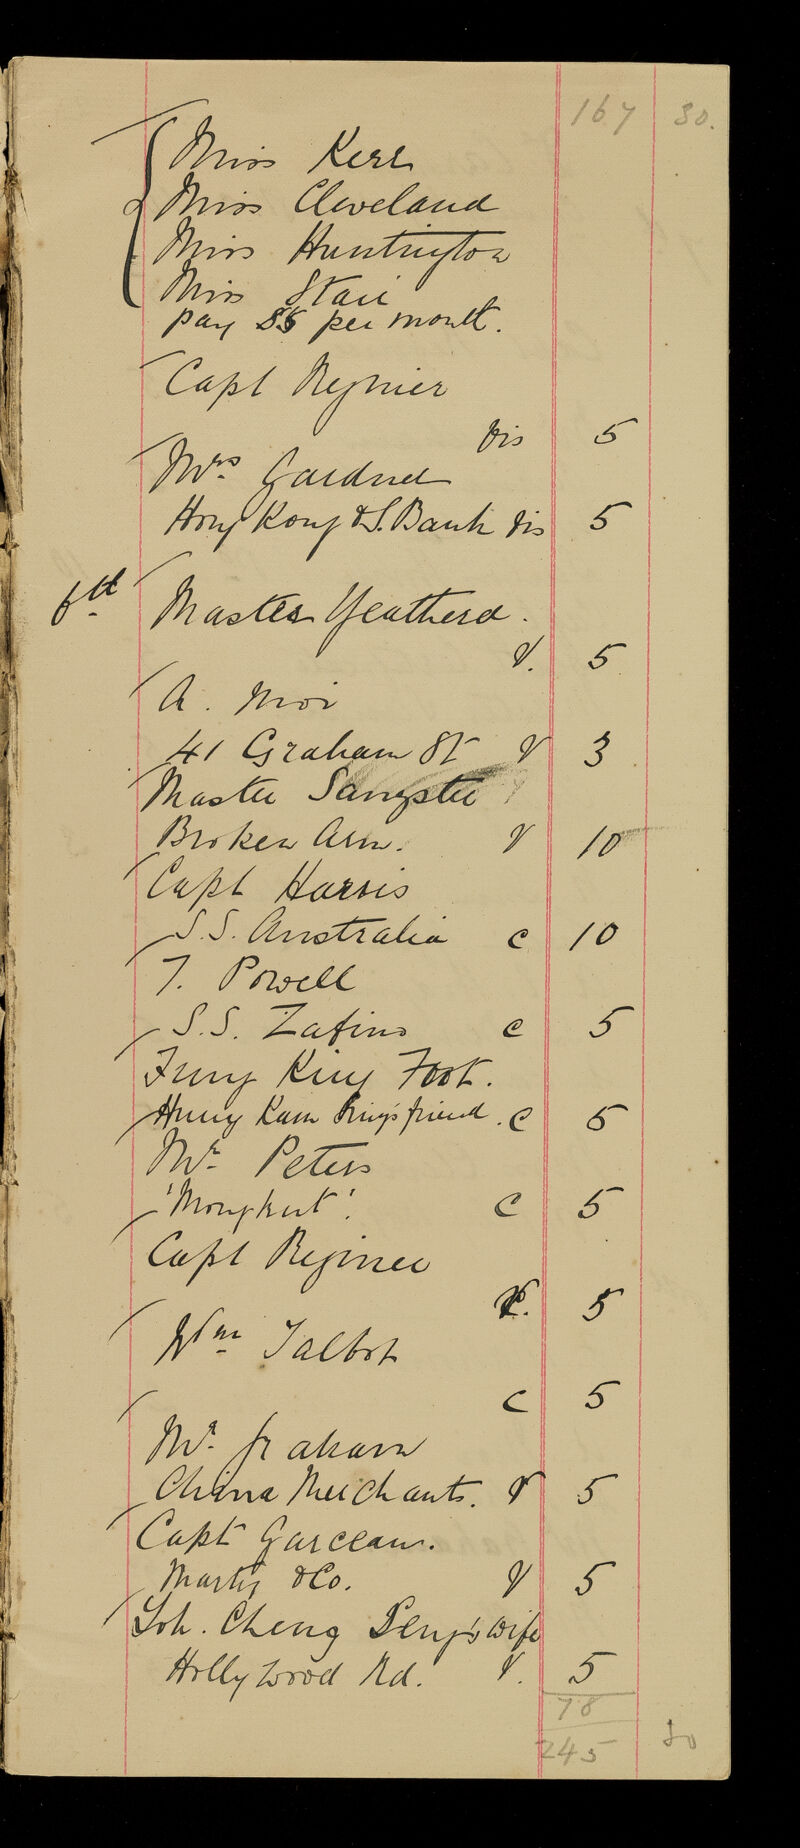 167 80.
Miss Kerr
Miss Cleveland
Miss Huntington
Miss Stair
pay $5 per month.
Capt Regnier
Vis 5
Mrs. Gardner
Hong Kong & S. Bank Vis 5
6th Master Yeatherd.
V. 5
A. Moi
41 Graham St V 3
Master Sangster
Broken Arm. V 10
Capt Harris
S.S. Australia C 10
T. Powell
S.S. Zafiro C 5
Fung King Foot.
Hung Kam friend. C 5
Mr. Peters
'Mongkut'. C 5
Capt Regnier
V. 5
Wm Talbot
C 5
Mr. Graham
China Merchants. V 5
Capt Garceau.
Marty & Co. V 5
Loh. Cheng wife
Hollywood Rd. V. 5
78
245 80